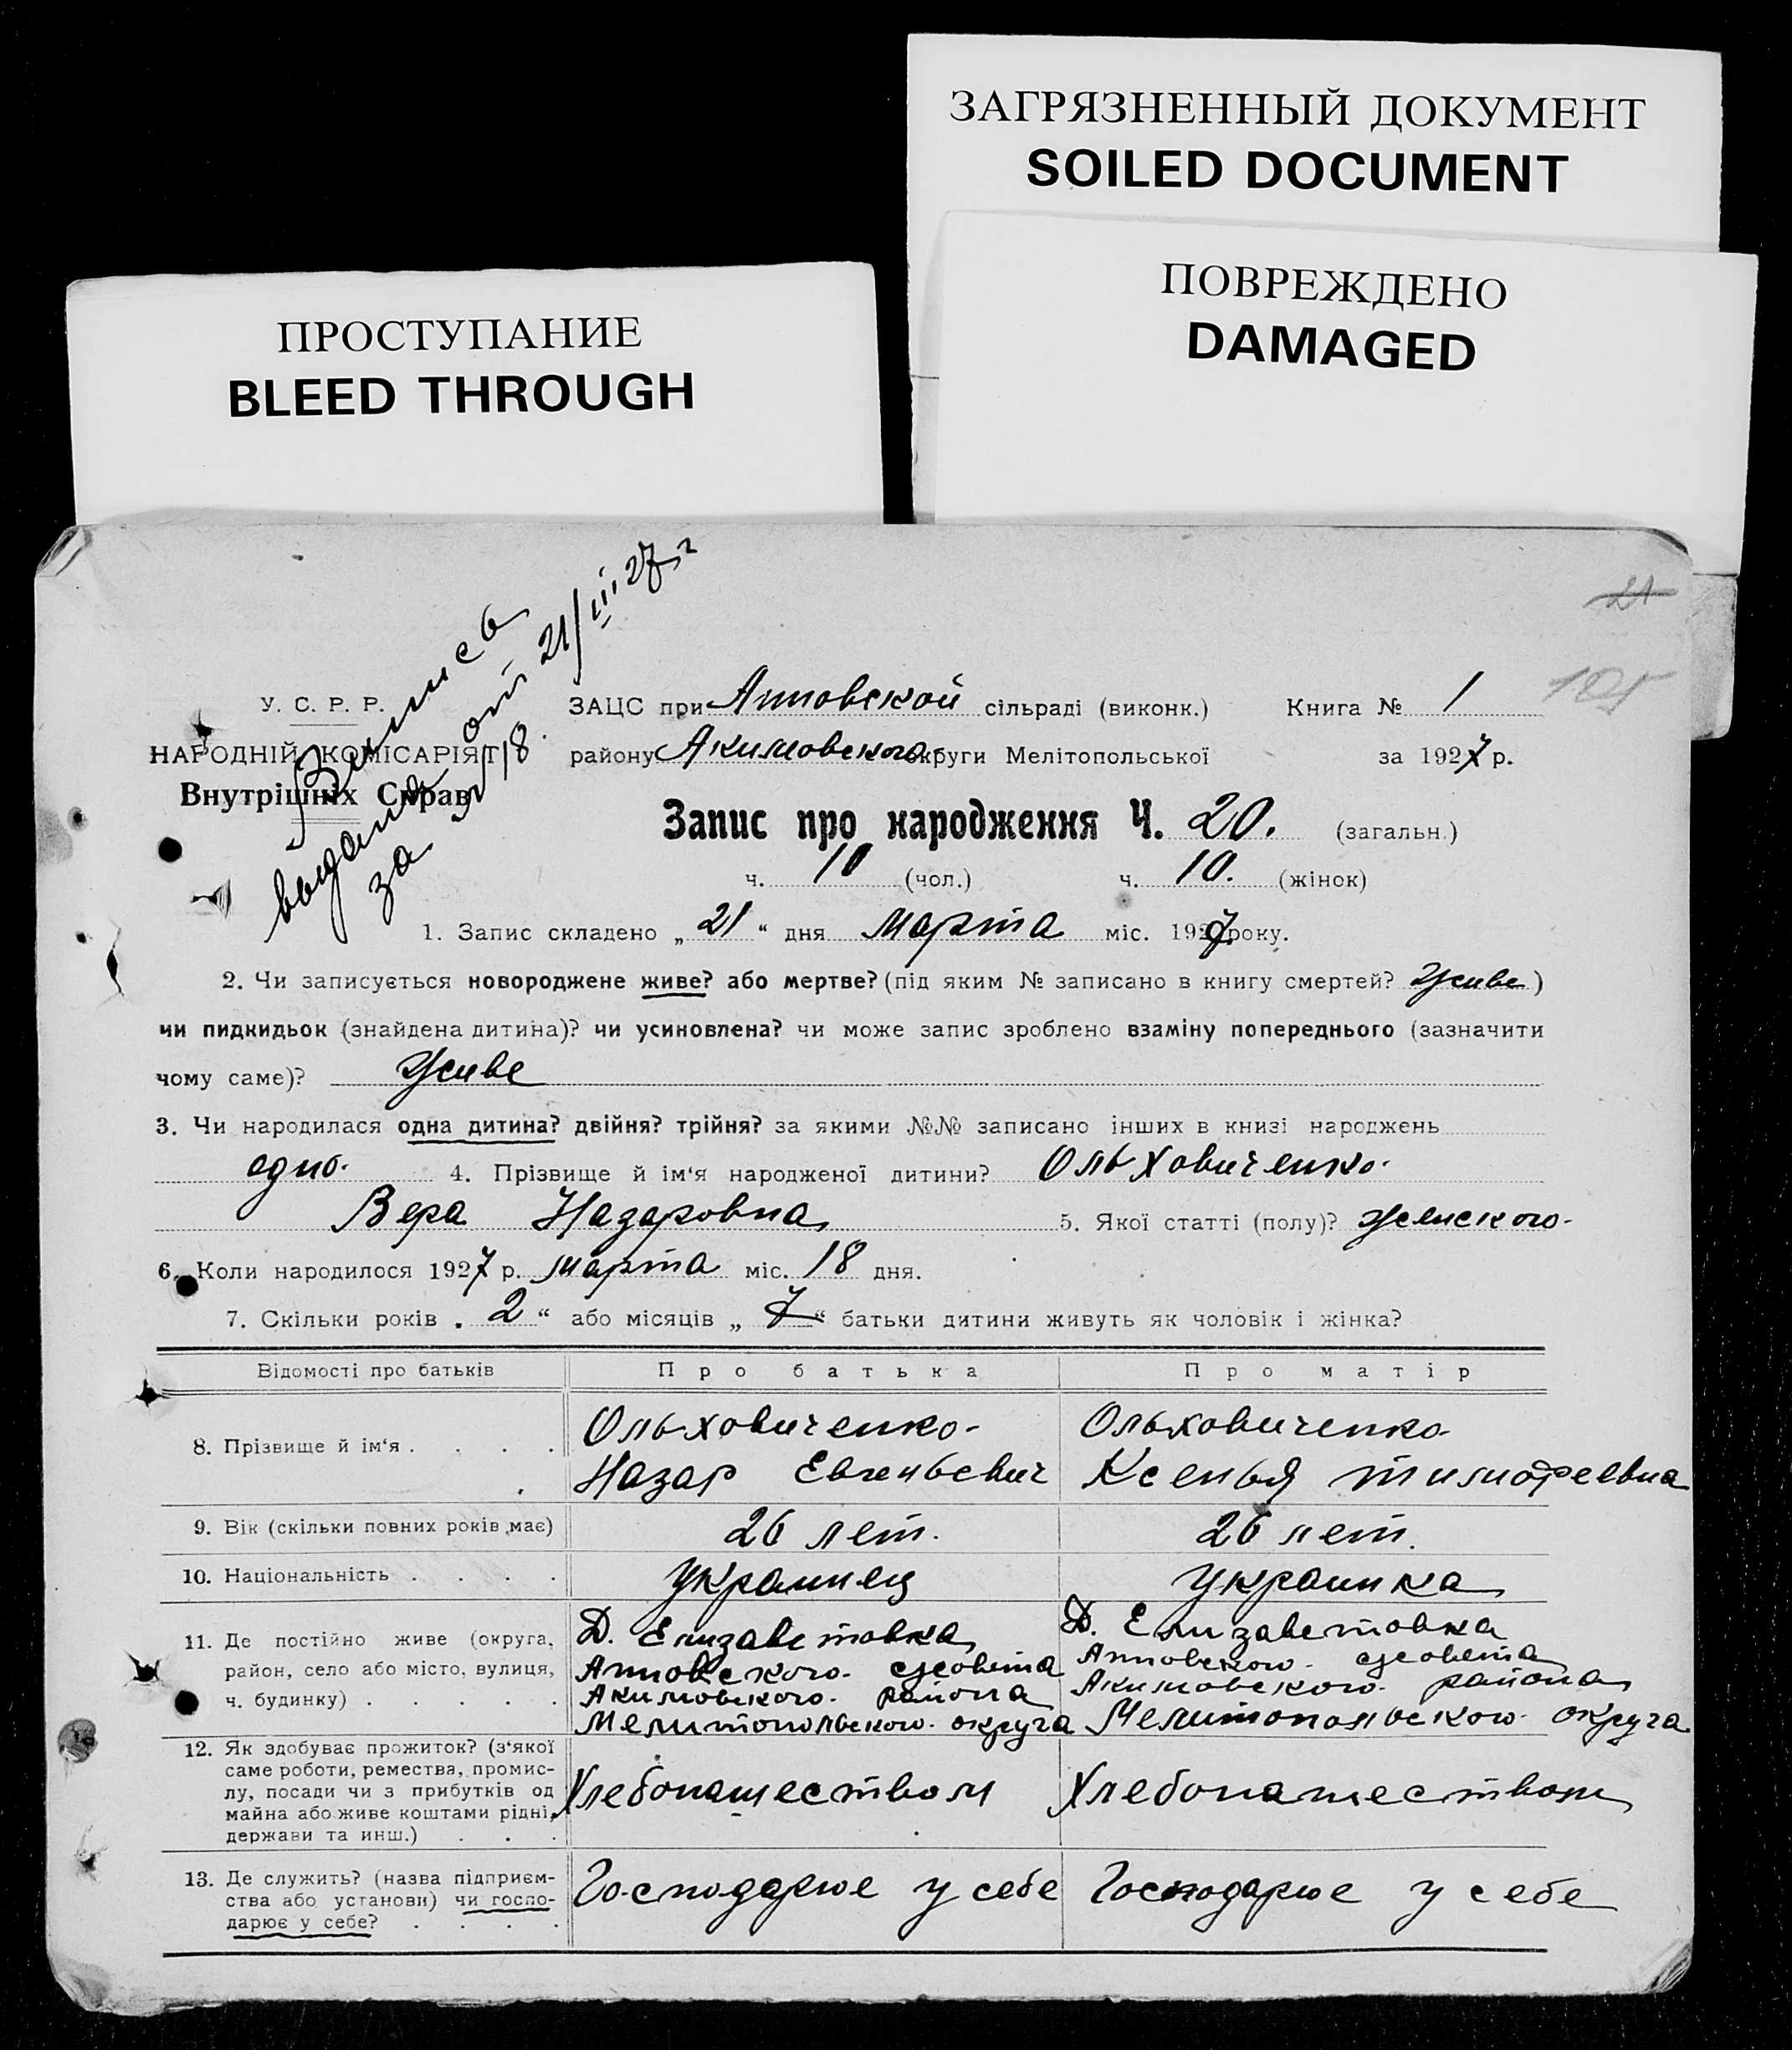 ЗАГРЯЗНЕННЫЙ ДОКУМЕНТ
SOILED DOCUMENT
ПОВРЕЖДЕНО
DAMAGED
ПРОСТУПАНИЕ
BLEED THROUGH
21
Выпись
выдана
за № 18 от 21/III 27 г
У. С. Р. Р.
НАРОДНІЙ КОМІСАРІЯТ
Внутрішніх Справ
ЗАЦС при Анновской сільраді (виконк.) Книга № 1
району Акимовского округи Мелітопольської за 1927 р.
Запис про народження Ч. 20. (загальн.)
ч. 10 (чол.) ч. 10. (жінок)
1. Запис складено „ 21 “ дня марта міс. 1927 року.
2. Чи записується новороджене живе? або мертве? (під яким № записано в книгу смертей? Живе )
чи пидкидьок (знайдена дитина)? чи усиновлена? чи може запис зроблено взаміну попереднього (зазначити
чому саме)? Живе
3. Чи народилася одна дитина? двійня? трійня? за якими №№ записано інших в книзі народжень
одно. 4. Прізвище й ім'я народженої дитини? Ольховиченко.
Вера Назаровна 5. Якої статті (полу)? женского.
6. Коли народилося 1927 р. марта міс. 18 дня.
7. Скільки років „ 2 “ або місяців „ 7 “ батьки дитини живуть як чоловік і жінка?
Відомості про батьків Про батька Про матір
8. Прізвище й ім'я . . . . Ольховиченко- Ольховиченко-
Назар Евгеньевич Ксенья тимофеевна
9. Вік (скільки повних років має) 26 лет. 26 лет.
10. Національність . . . . украинец украинка
11. Де постійно живе (округа, Д. Елизаветовка Д. Елизаветовка
район, село або місто, вулиця, Анновского. сусовета Анновского. сусовета
ч. будинку) . . . . . Акимовского. района Акимовского. района
Мелитопольского. округа Мелитопольского. округа
12. Як здобуває прожиток? (з'якої
саме роботи, ремества, промис-
лу, посади чи з прибутків од Хлебопашеством Хлебопашеством
майна або живе коштами рідні,
держави та инш.) . . .
13. Де служить? (назва підприєм- Господарюе у себе Господарюе у себе
ства або установи) чи госпо-
дарює у себе? . . . .